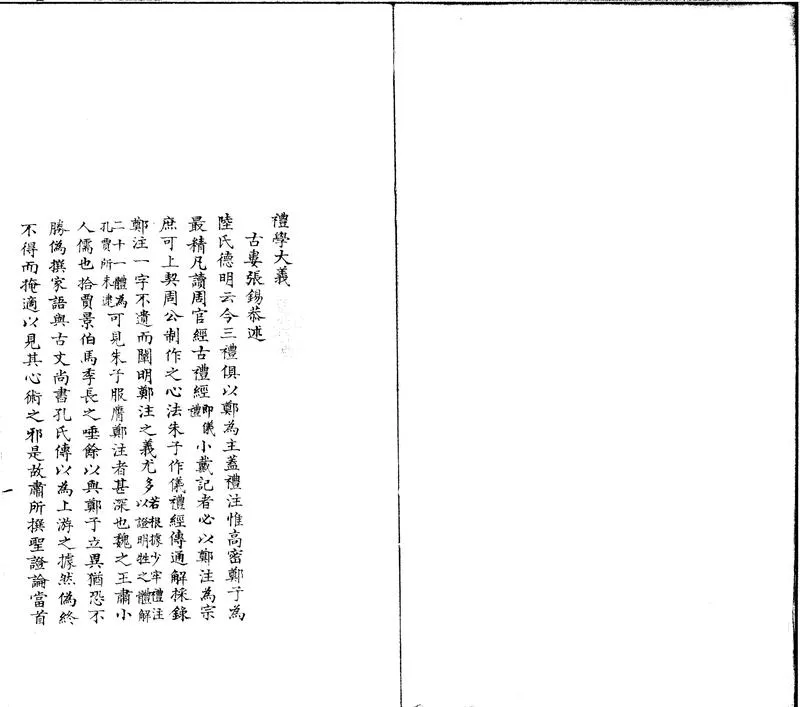 禮學大義
古婁張錫恭述
陸氏德明云今三禮俱以鄭為主蓋禮注惟高密鄭子為
最精凡讀周官經古禮經即儀禮小戴記者必以鄭注為宗
庶可上契周公制作之心法朱子作儀禮經傳通解採錄
鄭注一字不遺而闡明鄭注之義尤多若根據少牢禮注以證明牲之體解
二十一體為孔賈所未逮可見朱子服膺鄭注者甚深也魏之王肅小
人儒也拾賈景伯馬季長之唾餘以與鄭子立異猶恐不
勝偽撰家語與古文尚書孔氏傳以為上游之據然偽終
不得而掩適以見其心術之邪是故肅所撰聖證論當首